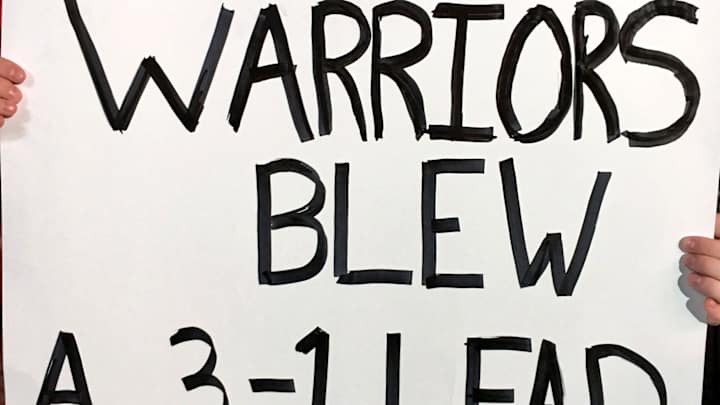 WARRIORS
BLEW
A 3-1 LEAD